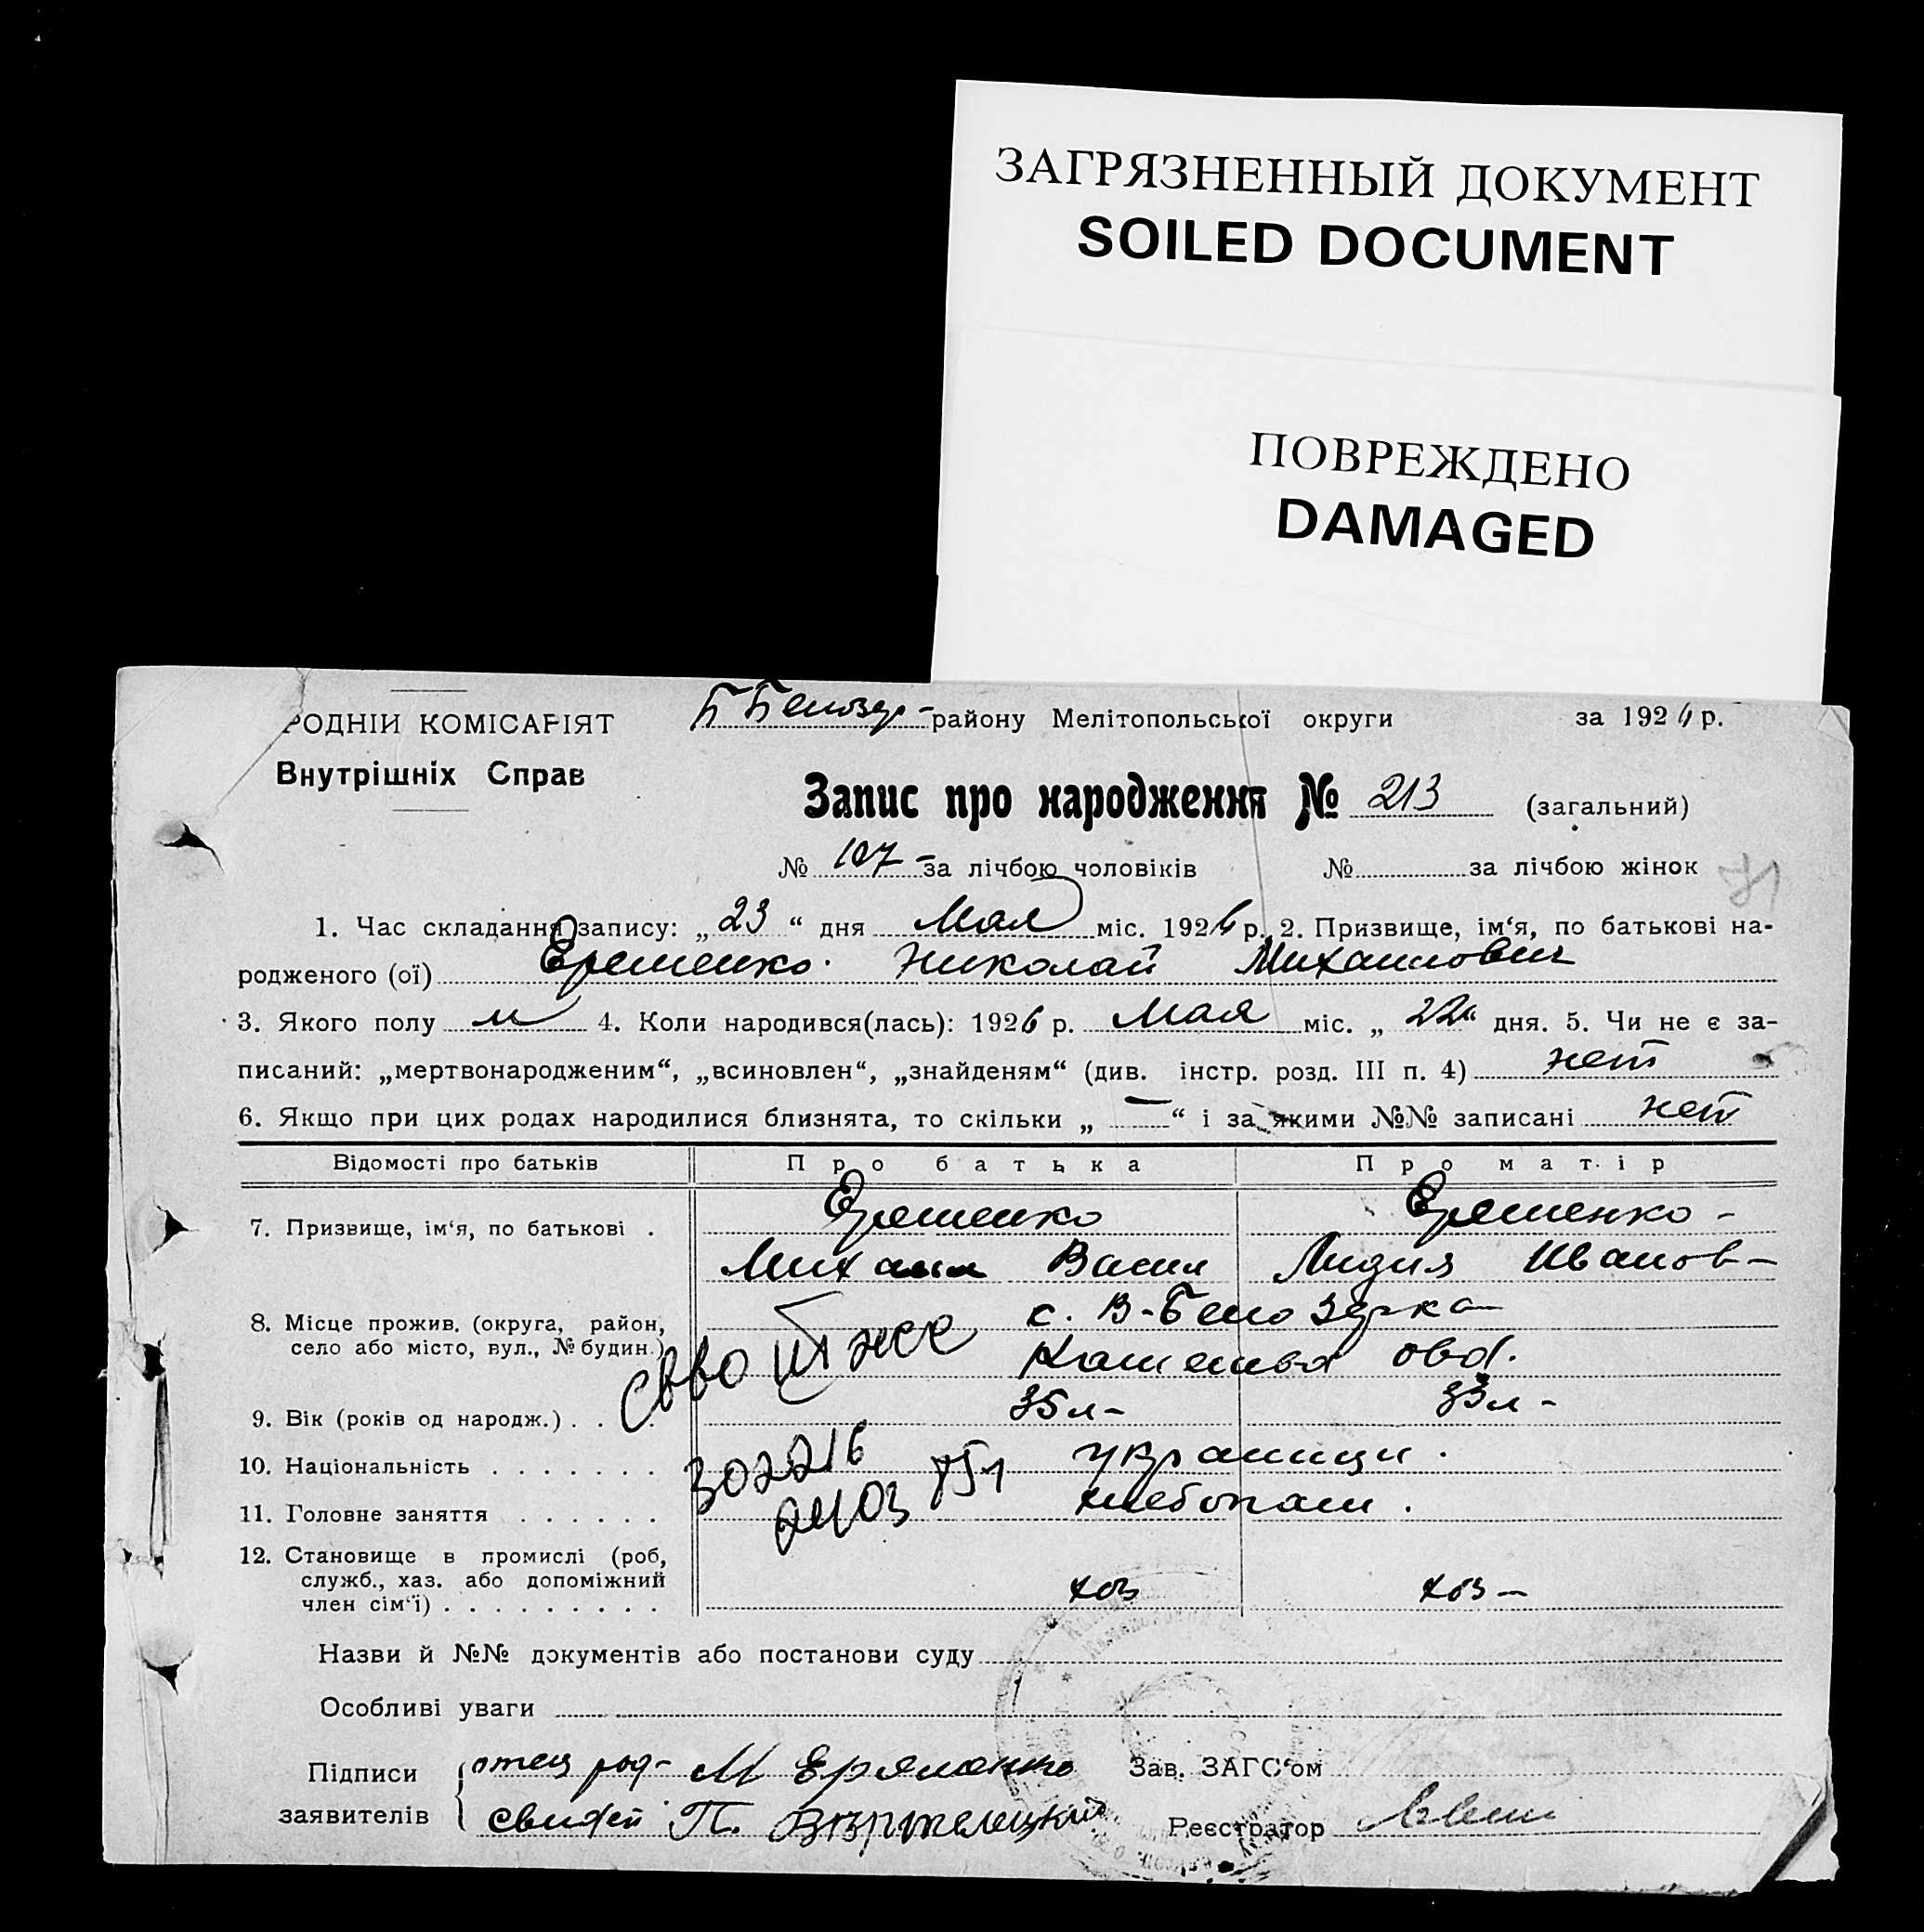 ЗАГРЯЗНЕННЫЙ ДОКУМЕНТ
SOILED DOCUMENT
ПОВРЕЖДЕНО
DAMAGED
РОДНІЙ КОМІСАРІЯТ
Внутрішніх Справ
Б Белозер- району Мелітопольської округи за 1926 р.
Запис про народження № 213 (загальний)
№ 107- за лічбою чоловіків № за лічбою жінок
71
1. Час складання запису: „23“ дня Мая міс. 1926 р. 2. Призвище, ім‘я, по батькові на-
родженого (ої) Еременко Николай Михаилович
3. Якого полу м 4. Коли народився(лась): 1926 р. Мая міс. „22“ дня. 5. Чи не є за-
писаний: „мертвонародженим“, „всиновлен“, „знайденям“ (див. інстр. розд. III п. 4) нет
6. Якщо при цих родах народилися близнята, то скільки „—“ і за якими №№ записані нет
Відомості про батьків Про батька Про матір
7. Призвище, ім‘я, по батькові . Еременко Еременко -
Михаил Васил Лидия Иванов-
8. Місце прожив. (округа, район, с. В-Белозерка
село або місто, вул., № будин.)
9. Вік (років од народж.) . . . . 35 л- 33 л -
10. Національність . . . . . . . украинци .
302216
11. Головне заняття . . . . . . хлебопаш .
12. Становище в промислі (роб,
служб., хаз. або допоміжний
член сім‘ї) . . . . . . . . . хоз хоз -
Назви й №№ документів або постанови суду
Особливі уваги
Підписи отец М Еременко Зав. ЗАГС‘ом
заявителів П. Реєстратор